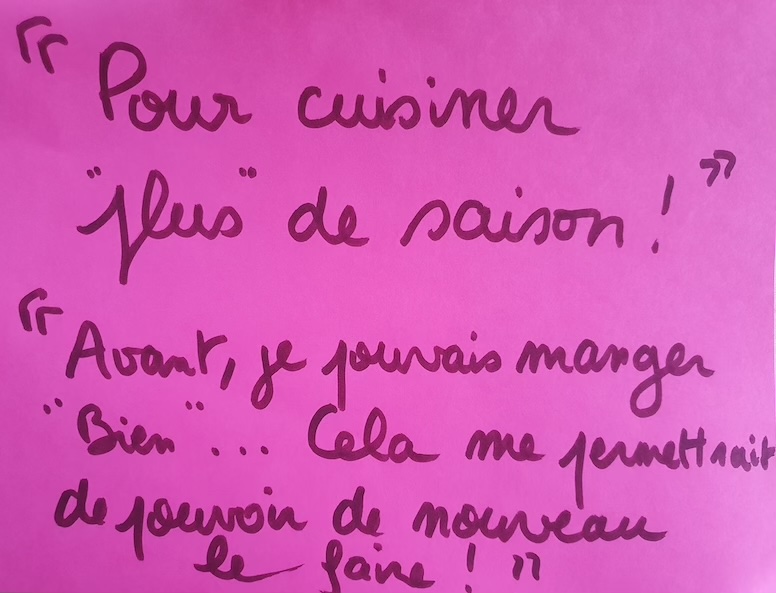 « Pour cuisiner
"plus" de saison ! »
« Avant, je pouvais manger
"Bien"... Cela me permettrait
de pouvoir de nouveau
le faire ! »